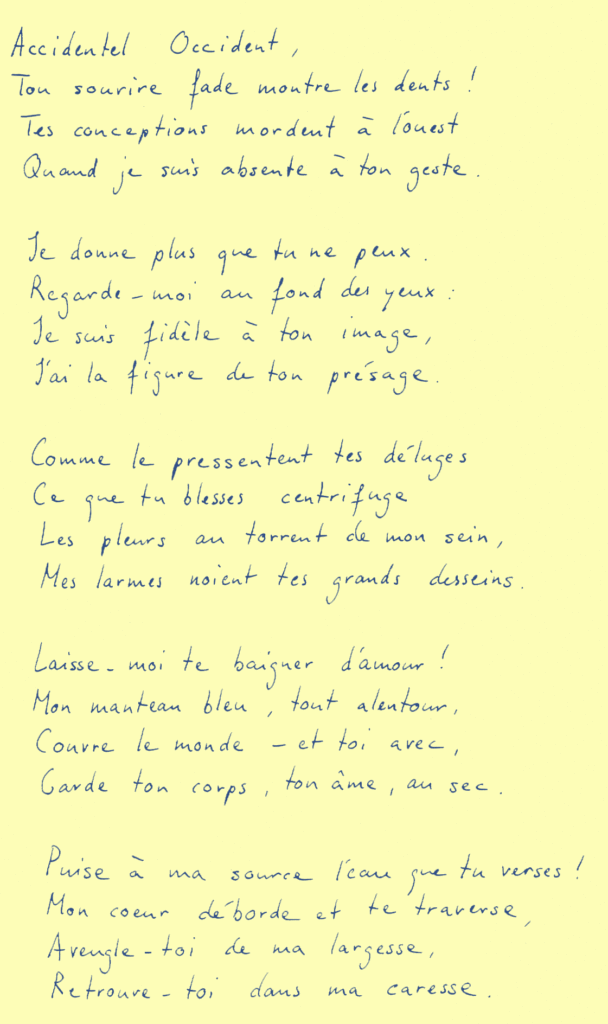 Accidentel Occident,
Ton sourire fade montre les dents !
Tes conceptions mordent à l'ouest
Quand je suis absente à ton geste.
Je donne plus que tu ne peux.
Regarde-moi au fond des yeux :
Je suis fidèle à ton image,
J'ai la figure de ton présage.
Comme le pressentent tes déluges
Ce que tu blesses centrifuge
Les pleurs au torrent de mon sein,
Mes larmes noient tes grands desseins.
Laisse-moi te baigner d'amour !
Mon manteau bleu, tout alentour,
Couvre le monde – et toi avec,
Garde ton corps, ton âme, au sec.
Puise à ma source l'eau que tu verses !
Mon coeur déborde et te traverse,
Aveugle-toi de ma largesse,
Retrouve-toi dans ma caresse.